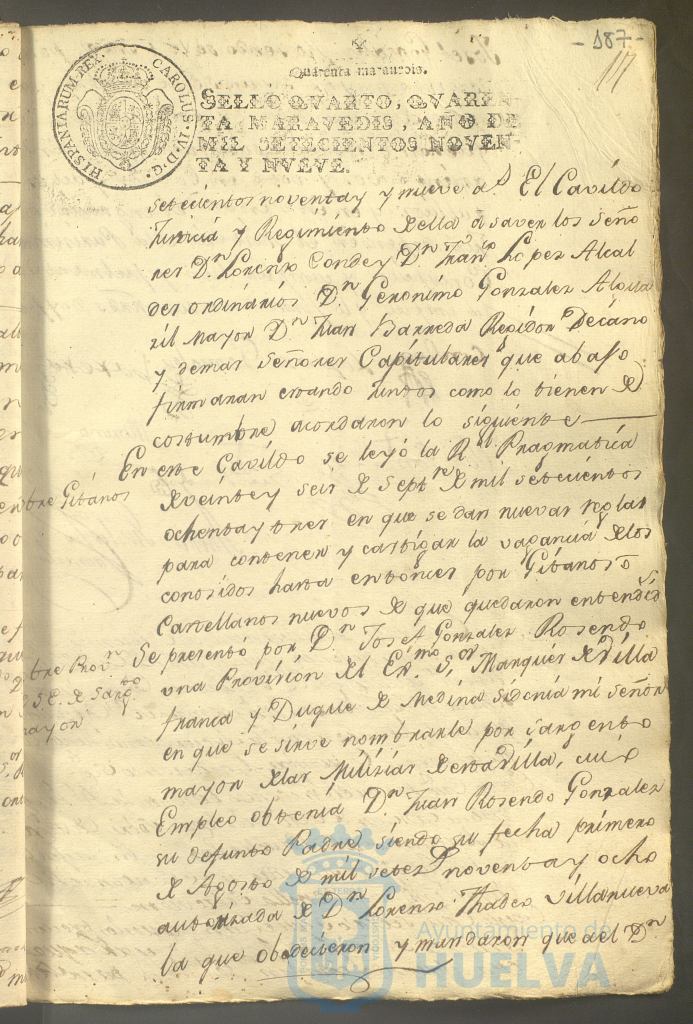 -187-
117
Quarenta marauedis.
HISPANIARUM REX. CAROLUS IV D.G.
SELLO QVARTO, QVAREN-
TA MARAVEDIS, AÑO DE
MIL SETECIENTOS NOVEN-
TA Y NVEVE.
setecientos noventa y nueve as. El Cavildo
Justicia y Regimiento de ella a saver los Seño
res Dn. Lorenzo Conde y Dn. Franco. Lopez Alcal
des ordinários Dn. Geronimo Gonzalez Alg
zil mayor Dn. Juan Barreda Regidor Decáno
y demas Señores Capitulares que abaso
firmaran estando juntos como lo tienen de
costumbre acordaron lo siguiente
En este Cavildo se leyó la Rl. Pragmatica
tre Gitanos
de veinte y seis de Septre. de mil setecientos
ochenta y tres en que se dan nuevas reglas
para contener y castigar la vagancia de los
conosidos hasta entonces por Gitanos o
Castellanos nuevos de que quedaron entendids
Se presentó por Dn. Josef Gonzalez Rosendo
tre Provn.
S.E. de Sargto.
mayor
una Provision del Exmo. Sor. Marques de Villa
franca y Duque de Medina Sidonia mi señor
en que se sirve nombrarle por sargento
mayor de las Milizias de esta Villa, cuio
Empleo obtenia Dn. Juan Rosendo Gonzalez
su defunto Padre siendo su fecha primero
de Agosto de mil setes. noventa y ocho
autorizada de Dn. Lorenzo Thadeo Villanueva
la que obedecieron y mandaron que al Dn.
Ayuntamiento de
HUELVA